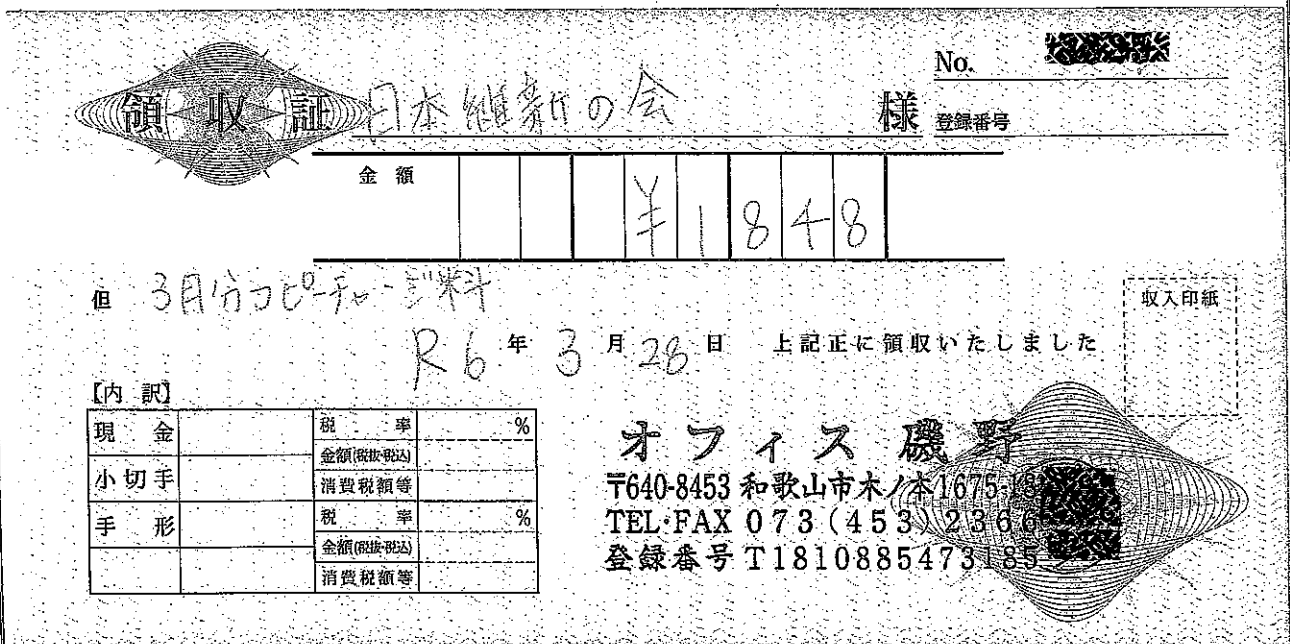 No.
領収証 日本維新の会 様
登録番号
金額 ¥1848
但 3月分コピーチャージ料
収入印紙
R6年3月28日 上記正に領収いたしました
【内 訳】
現金 税率 %
金額(税抜・税込)
小切手 消費税額等
手形 税率 %
金額(税抜・税込)
消費税額等
オフィス磯野
〒640-8453 和歌山市木ノ本1675-18
TEL・FAX 073(453)2366
登録番号 T1810885473185